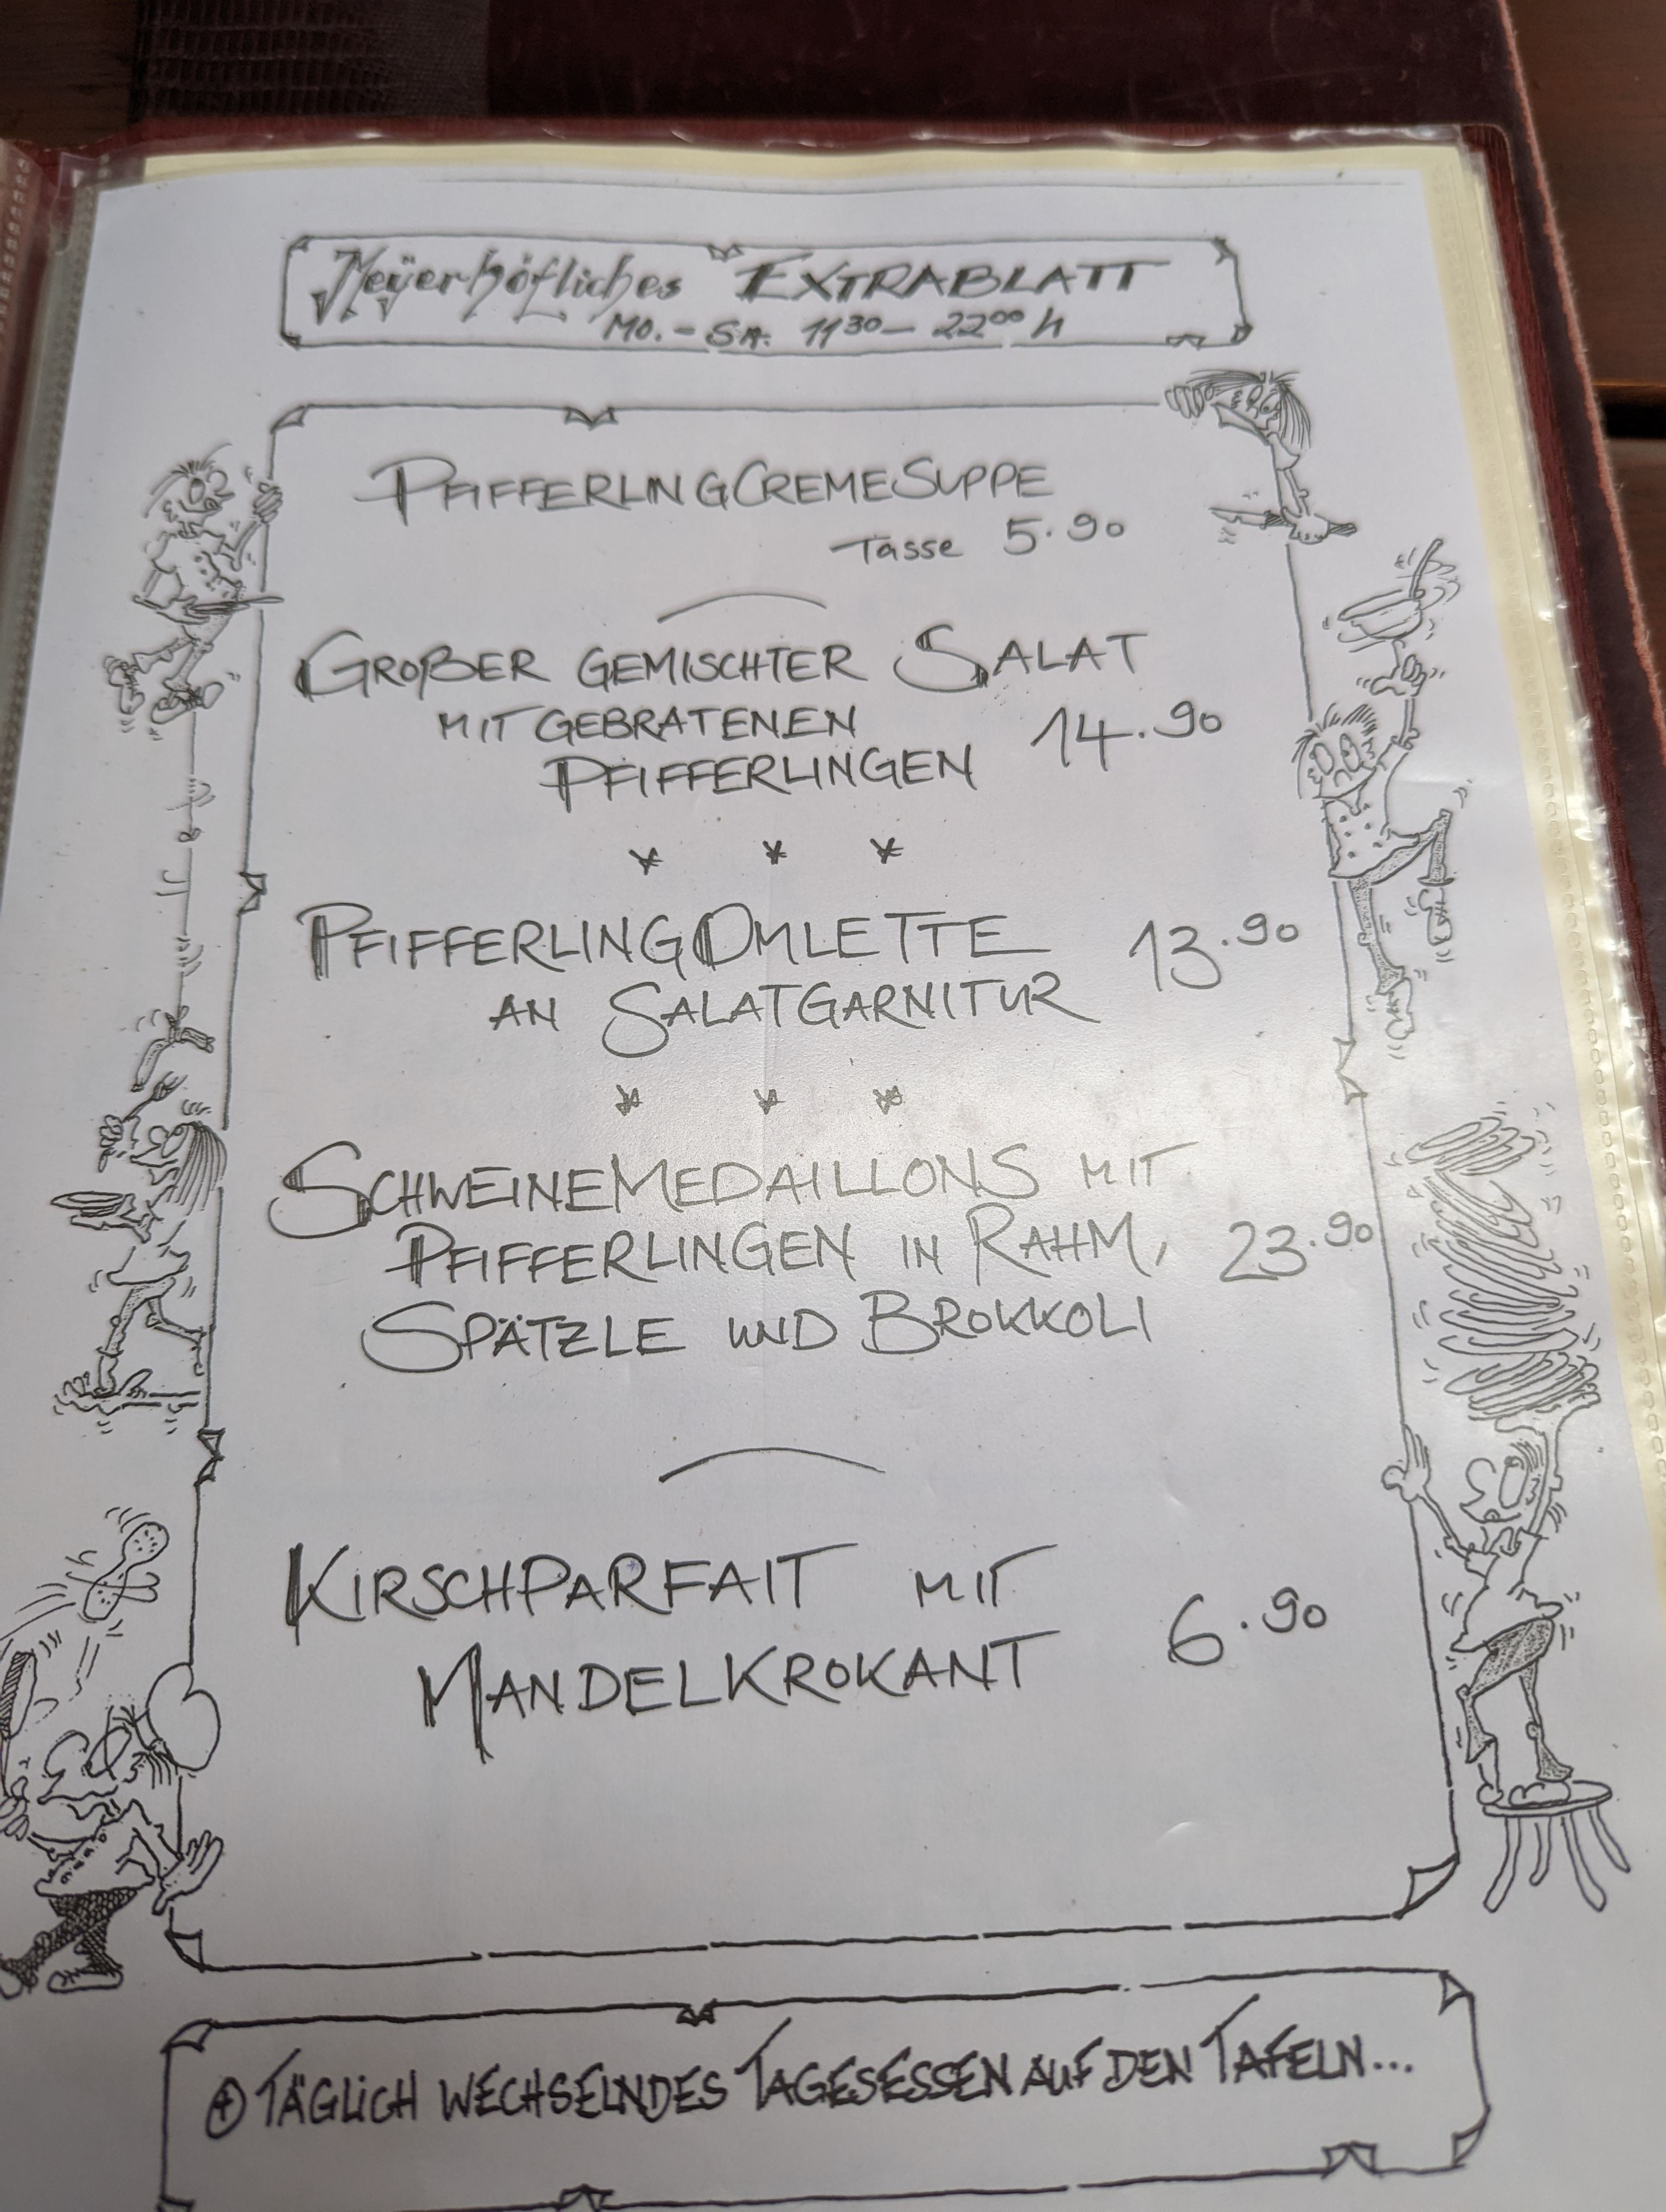 Meyerhöfliches EXTRABLATT
MO. - SA. 11³⁰ - 22⁰⁰ h
PFIFFERLINGCREMESUPPE
Tasse 5.90
GROßER GEMISCHTER SALAT
MIT GEBRATENEN
PFIFFERLINGEN 14.90
* * *
PFIFFERLINGOMLETTE 13.90
AN SALATGARNITUR
* * *
SCHWEINEMEDAILLONS MIT
PFIFFERLINGEN IN RAHM, 23.90
SPÄTZLE UND BROKKOLI
KIRSCHPARFAIT MIT
MANDELKROKANT 6.90
⊕ TÄGLICH WECHSELNDES TAGESESSEN AUF DEN TAFELN...